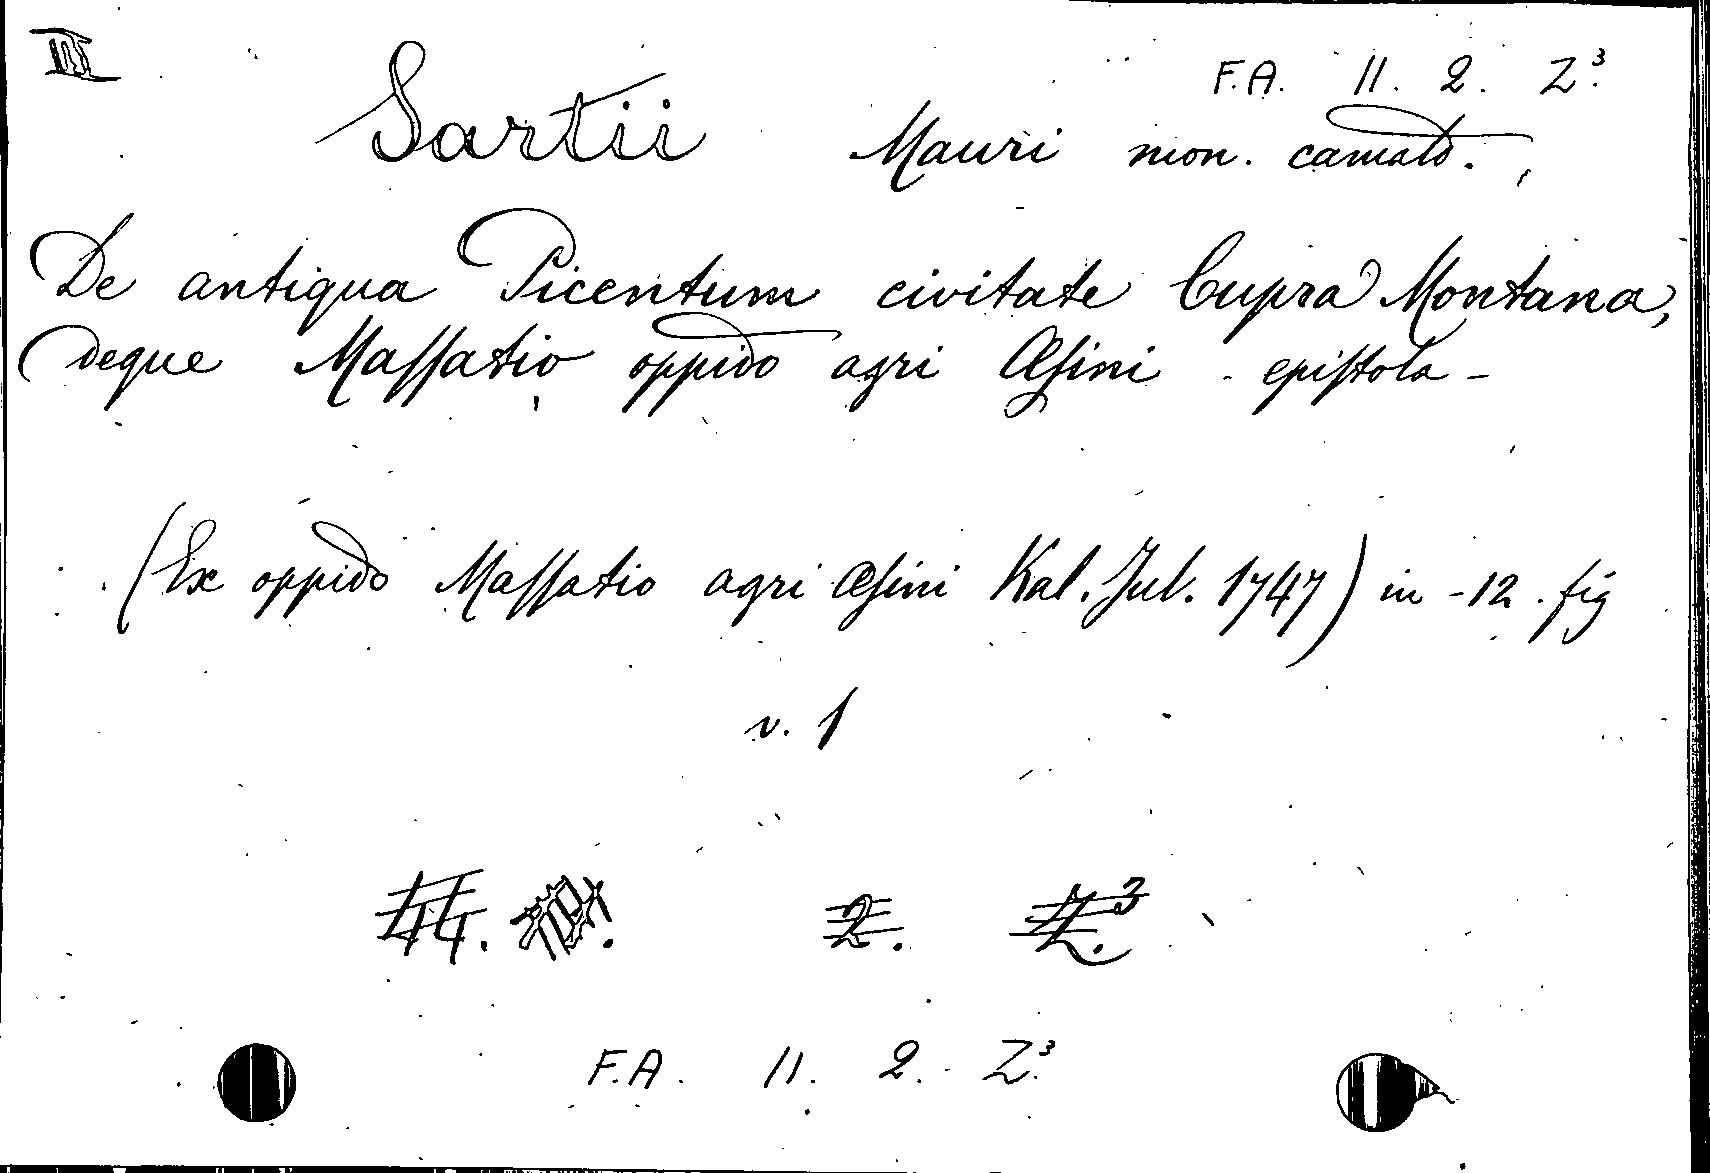 III
F.A. 11. 2. Z³.
Sartii Mauri mon. camald.,
De antiqua Picentum civitate Cupra Montana,
deque Maſſatio oppido agri Æſini - epiſtola -
(Ex oppido Maſſatio agri Æſini Kal. Jul. 1747) in -12. fig
v. 1
44. 2. Z³.
F.A. 11. 2. Z³.